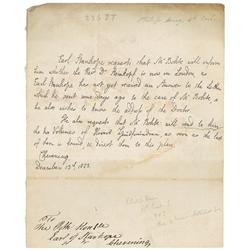 Earl Stanhope requests that Mr Bohte will inform
him whether the Revd Dr is now in London as
Earl Stanhope has not yet received an Answer to the Letter
which he sent some days ago to the care of Mr Bohte, &
he also wishes to know the Address of the Doctor.
He also requests that Mr Bohte will send to him
the Volumes of as soon as the last
of them is bound & direct them to this place.
Chevening
December 13th, 1823.
To
The Rt Honble
Earl of Stanhope
Chevening,